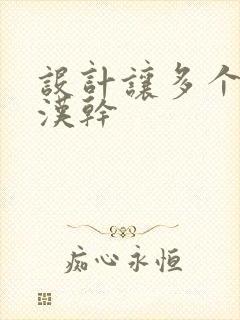 設計讓多个
漢幹
痴心永恒